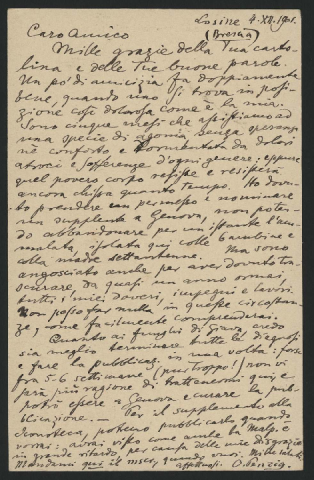 Losine 4.XII.1901.
(Brescia)
Caro Amico
Mille grazie della Tua carto-
lina e delle Tue buone parole.
Un po' di amicizia fa doppiamente
bene, quando uno si trova in posi-
zione così dolorosa come è la mia.
Sono cinque mesi che assistiamo ad
una specie di agonia senza speranza
nè conforto e tormentata da dolori
atroci e sofferenze d'ogni genere: eppure
quel povero corpo resiste e resisterà
ancora chissà quanto tempo. Ho dovu-
to prendere un permesso e nominare
una supplente a Genova, non poten-
do abbandonare per un istante l'am-
malata, isolata qui colle bambine e
colla madre settantenne. Ma sono
angosciato anche per aver dovuto tra-
scurare, da quasi un anno ormai,
tutti i miei doveri, impegni e lavori.
Non posso far nulla in queste circostan-
ze, come facilmente comprenderai.
Quanto ai funghi di Giava, credo
sia meglio terminare tutte le diagnosi
e fare la pubblicaz. in una volta: forse
fra 5-6 settimane (purtroppo!) non vi
sarà più ragione di trattenermi qui, e
potrò essere a Genova e curare la pub-
blicazione. — Per il supplemento alla
potremo pubblicarlo quando
vorrai: avrai visto come anche la Malp. è
in grande ritardo, per causa delle mie disgrazie
Mandami qui il mscr., quando vuoi. Mille saluti
affettuosi. O. Penzig.